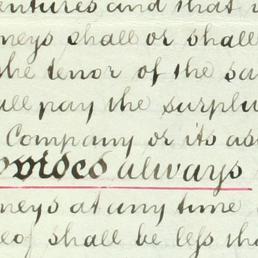 entures and that
neys shall or shall
the tenor of the sa
all pay the surplu
Company or its as
ovided always
neys at any time
eof shall be less tha